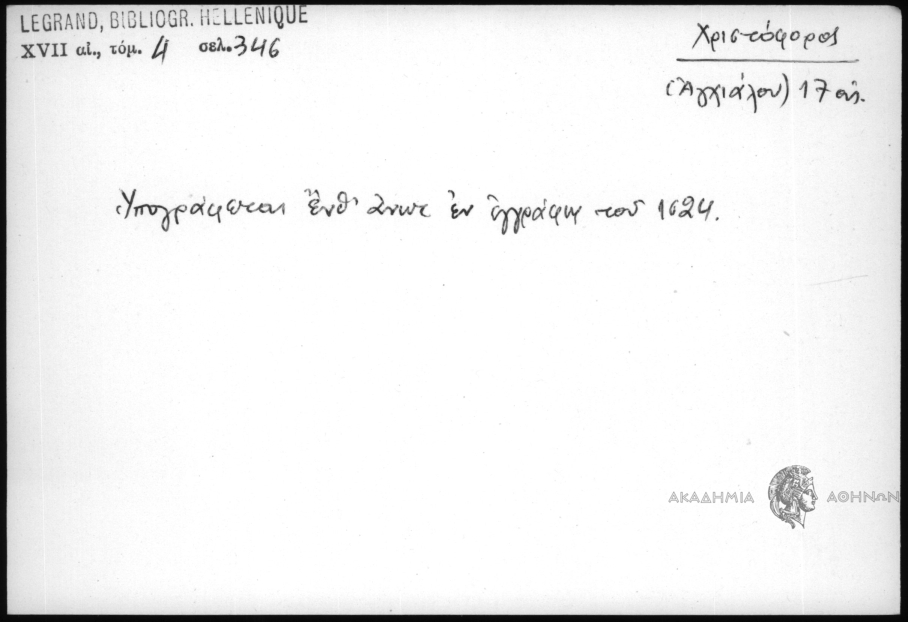 LEGRAND, BIBLIOGR. HELLENIQUE
XVII αἰ., τόμ. 4 σελ. 346
Χριστόφορος
(Ἀγχιάλου) 17 αἰ.
Ὑπογράφεται ἔνθ' ἄνωτ ἐν ἐγγράφῳ τοῦ 1624.
ΑΚΑΔΗΜΙΑ ΑΘΗΝΩΝ